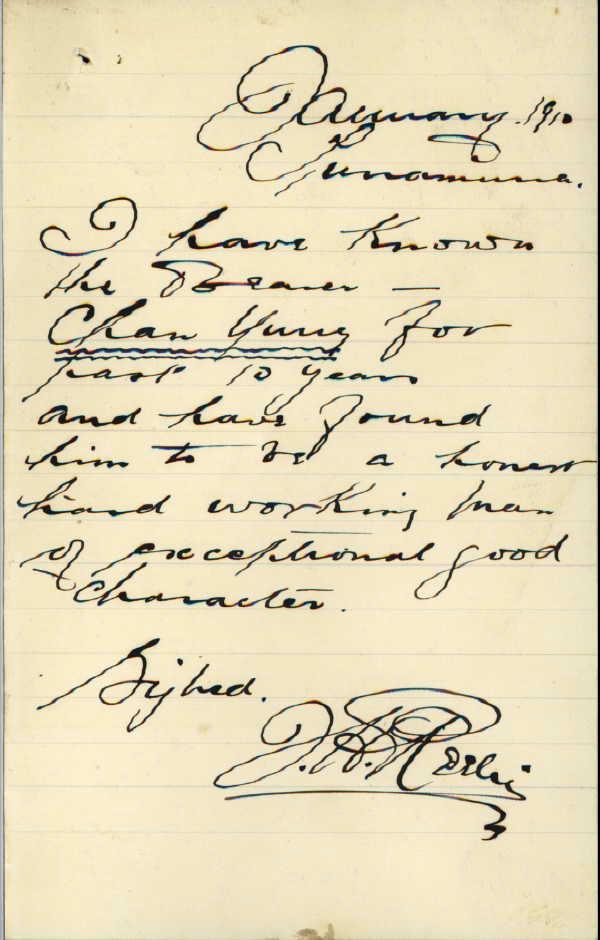 January. 1910
Punamuna.
I have Known
the Bearer —
Chan Yung for
past 10 years
and have found
him to be a honest
hard working man
of exceptional good
Character.
Signed.
J. H.